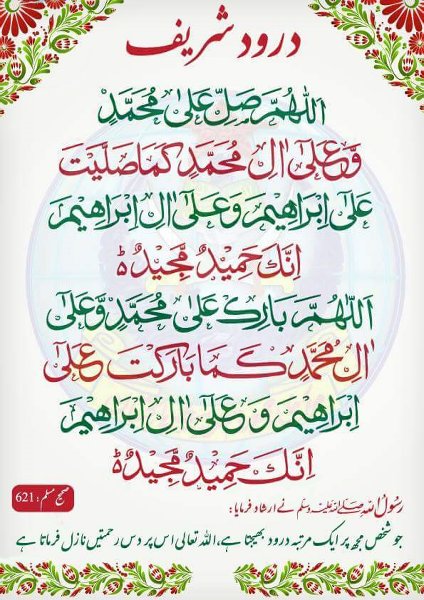 درود شریف
اَللّٰهُمَّ صَلِّ عَلٰى مُحَمَّدٍ
وَّعَلٰٓى اٰلِ مُحَمَّدٍ كَمَا صَلَّيْتَ
عَلٰٓى اِبْرَاهِيْمَ وَعَلٰٓى اٰلِ اِبْرَاهِيْمَ
اِنَّكَ حَمِيْدٌ مَّجِيْدٌ ؕ
اَللّٰهُمَّ بَارِكْ عَلٰى مُحَمَّدٍ وَّعَلٰٓى
اٰلِ مُحَمَّدٍ كَمَا بَارَكْتَ عَلٰٓى
اِبْرَاهِيْمَ وَ عَلٰٓى اٰلِ اِبْرَاهِيْمَ
اِنَّكَ حَمِيْدٌ مَّجِيْدٌ ؕ
رسول اللہ ﷺ نے ارشاد فرمایا :
صحیح مسلم : 621
جو شخص مجھ پر ایک مرتبہ درود بھیجتا ہے، اللہ تعالی اس پر دس رحمتیں نازل فرماتا ہے